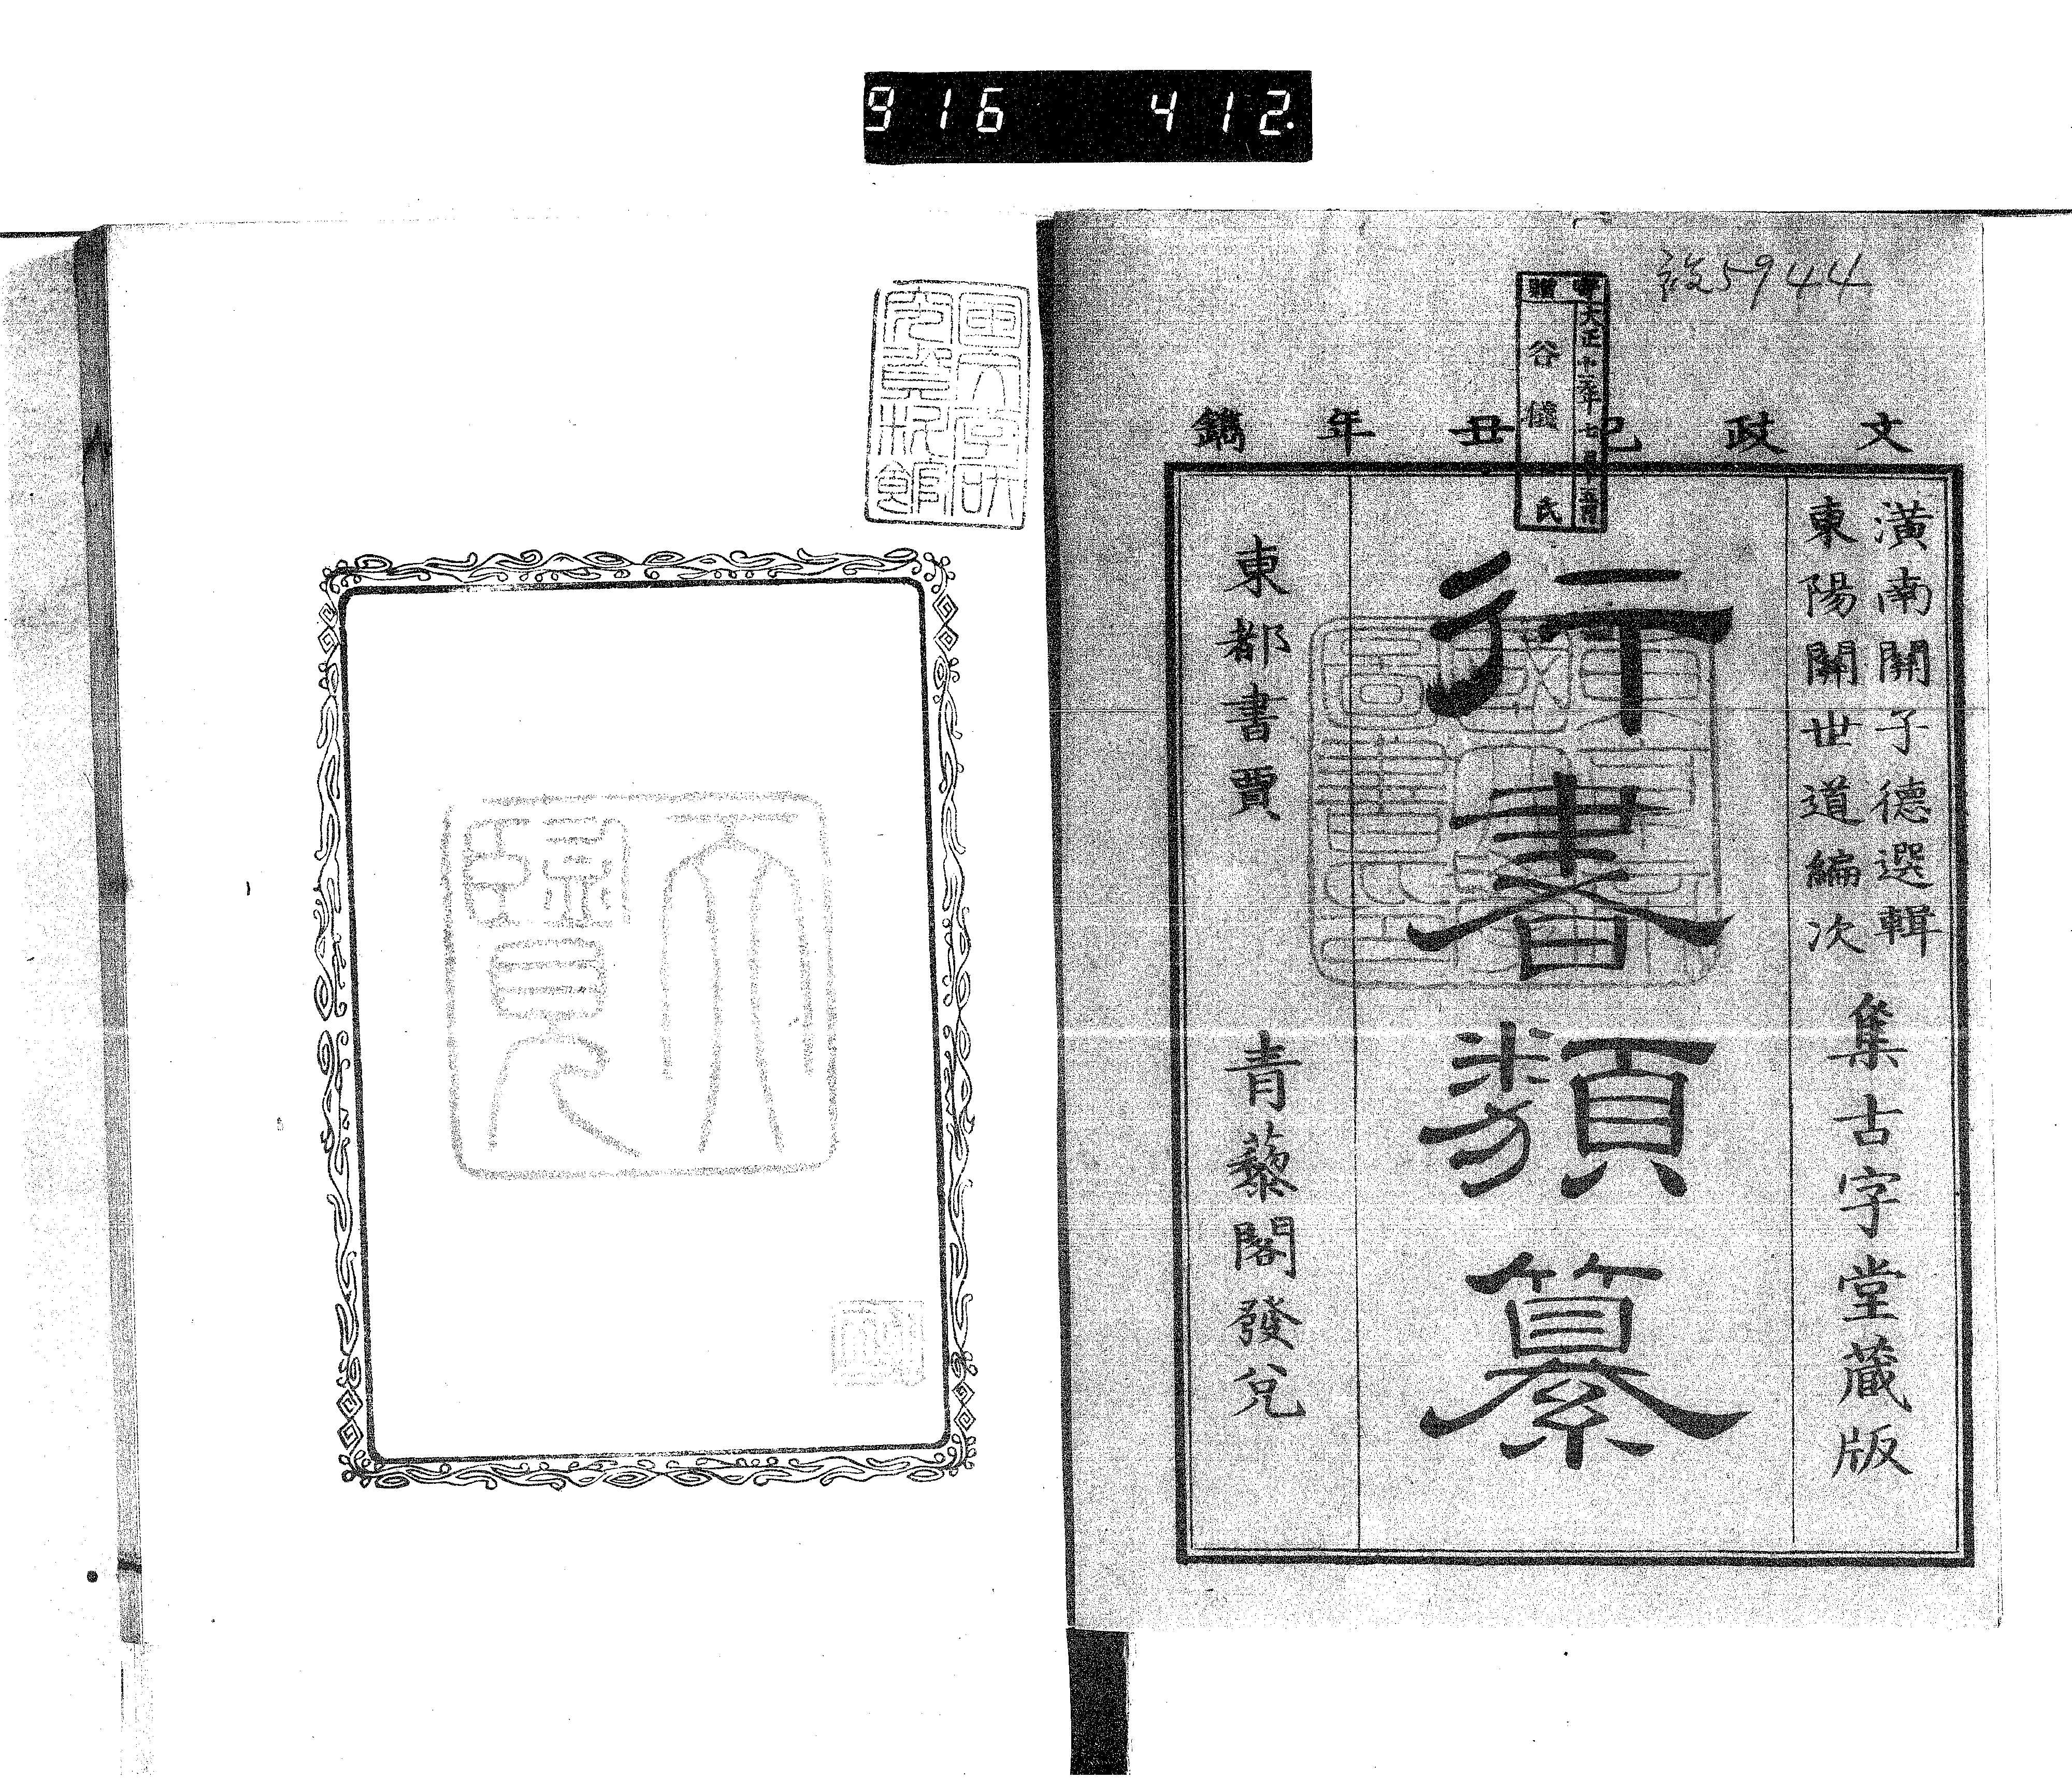 916 412.
5944
寄贈
大正十二年七月十五日
谷儀氏
文政己丑年鐫
潢南關子德選輯
東陽關世道編次
集古字堂蔵版
行書類纂
東都書賈 青藜閣發兌
國文學研
究資料館
天覽